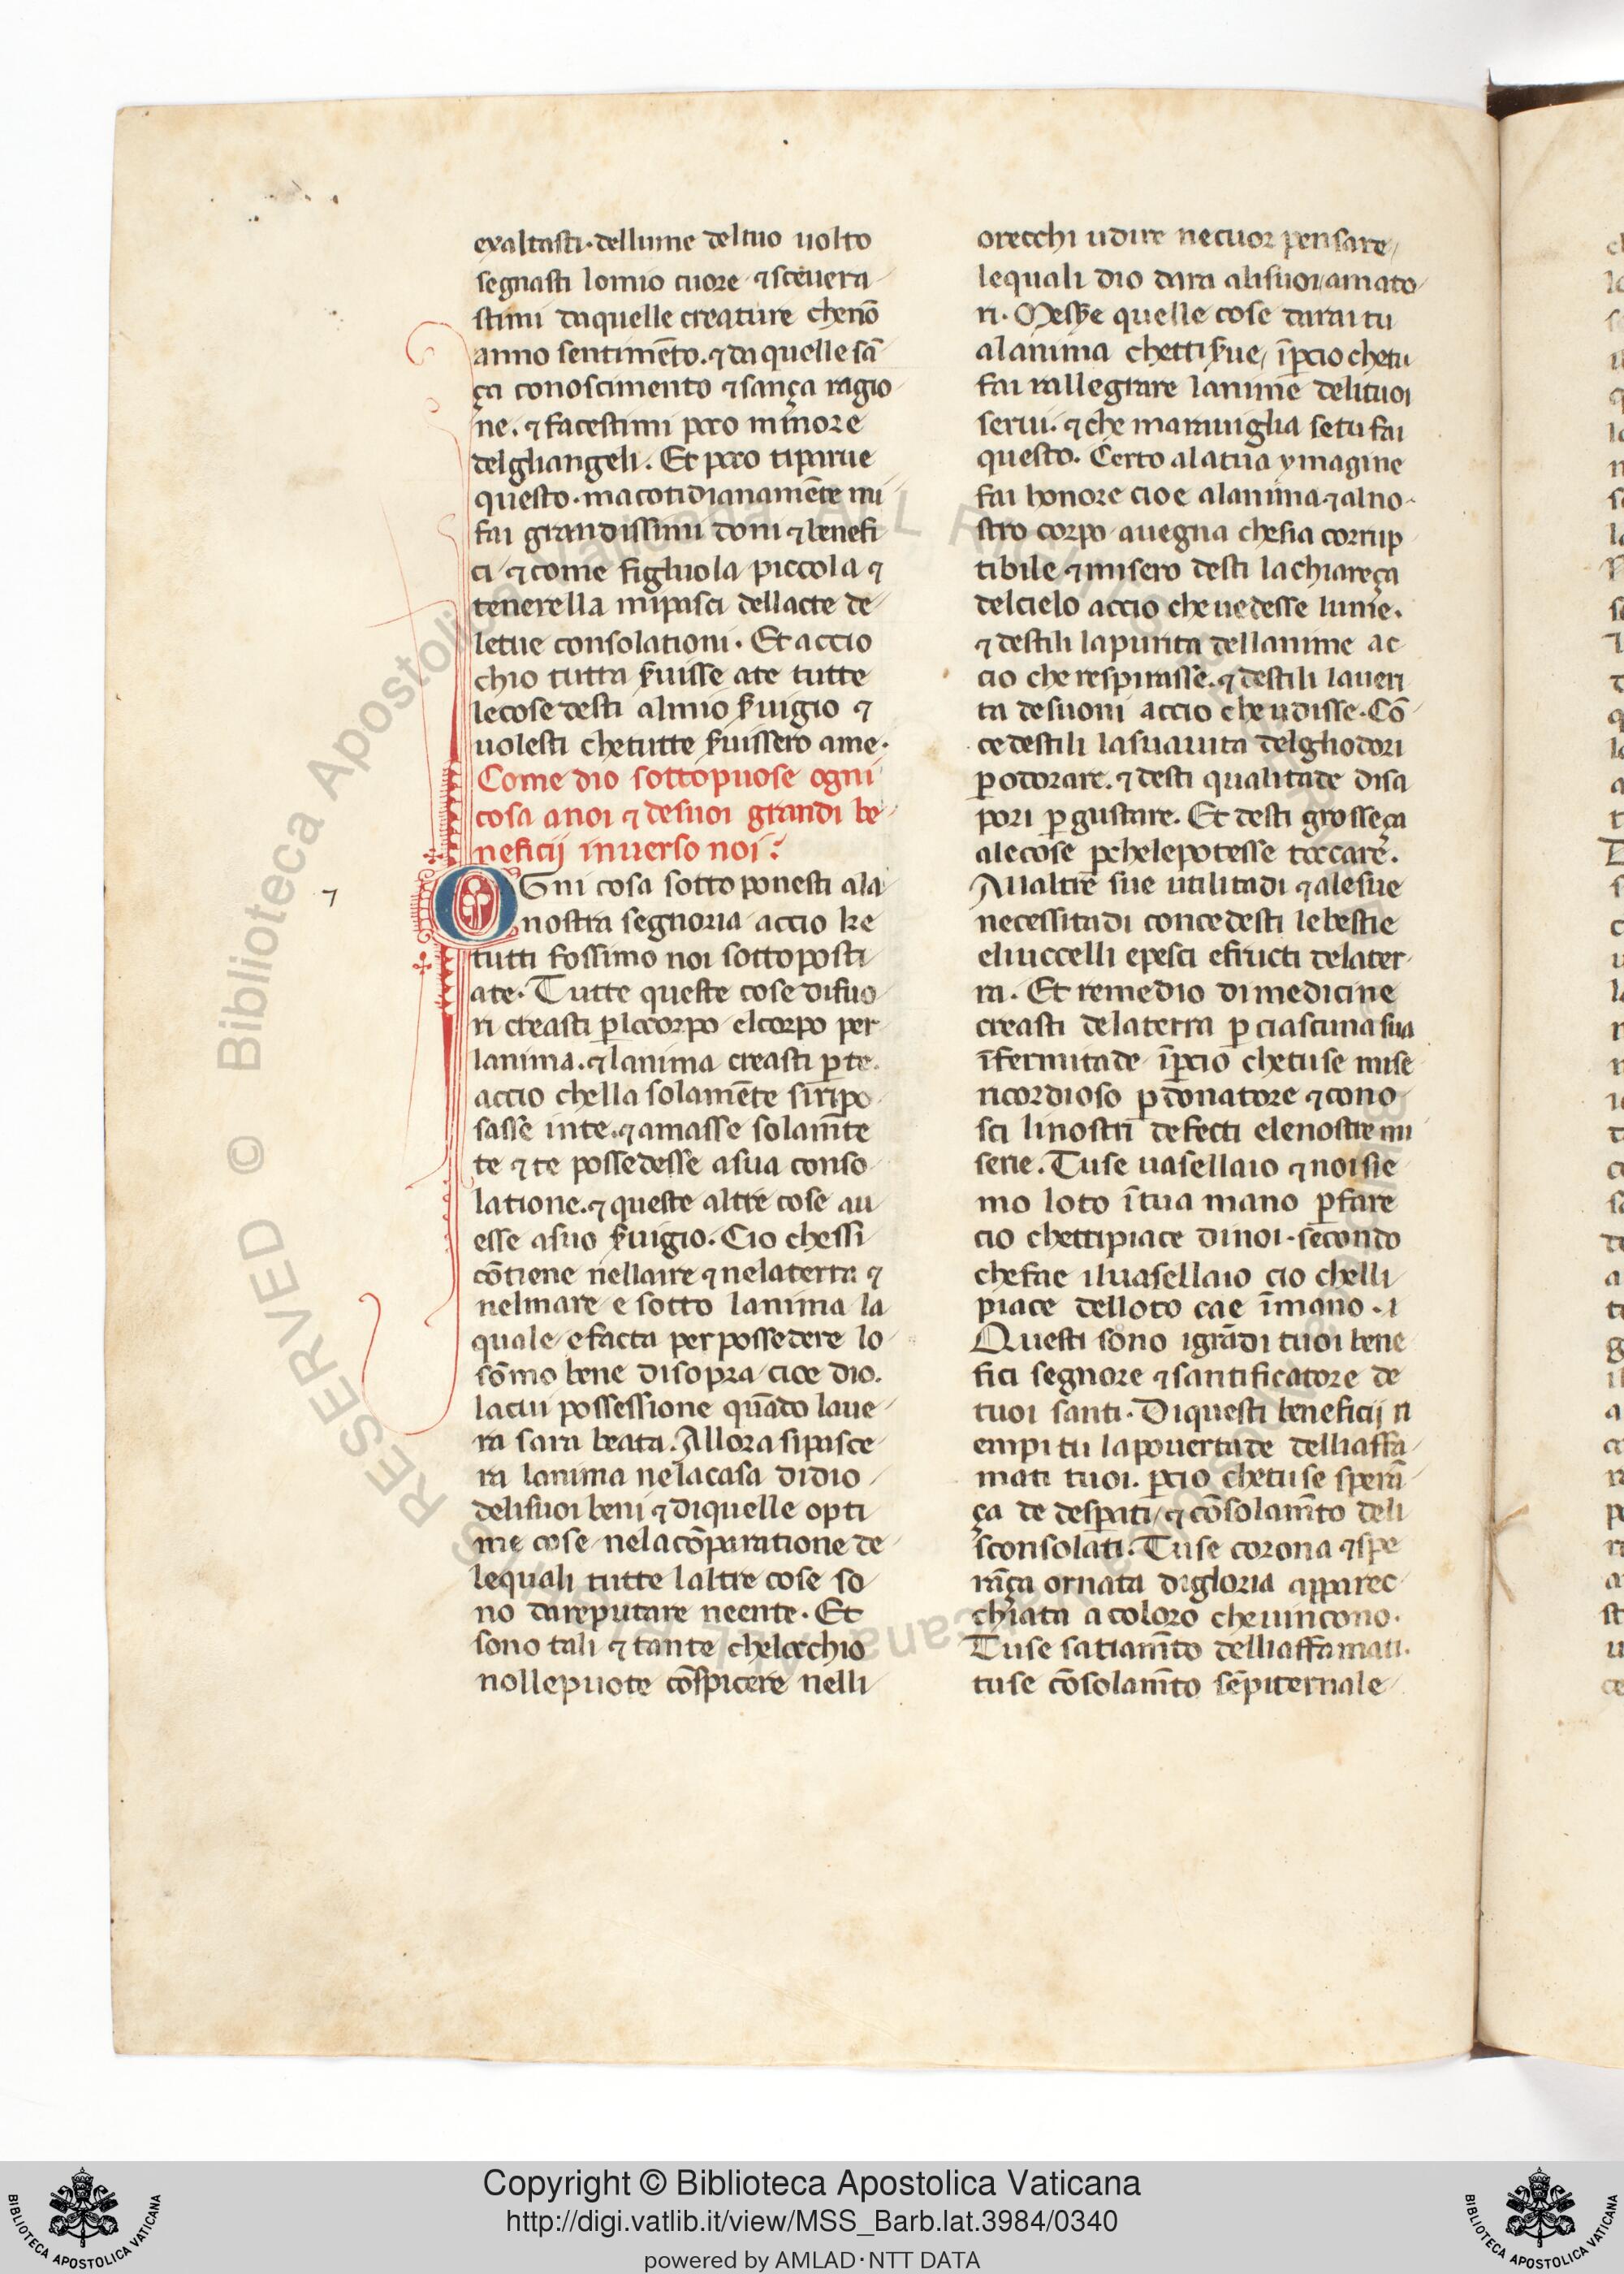 exaltasti·dellume deltuo uolto
segnasti lomio cuore ⁊sceuera
stimi daquelle creature chenō
anno sentimēto.⁊da quelle sā
ça conoscimento ⁊sança ragio
ne.⁊facestimi poco minore
delghangeli. Et poco tiparue
questo·macotidianamēte mi
fai grandissimi doni ⁊benefi
ci ⁊come figluola piccola ⁊
tenerella mipasci dellacte de
letue consolationi. Et accio
chio tutta ẜuisse ate tutte
lecose desti almio ẜuigio ⁊
uolesti chetutte ẜuissero ame·
Come dio sottopuose ogni
cosa anoi ⁊desuoi grandi be
neficij inuerso noi:
7
OGni cosa sottoponesti ala
nostra segnoria accio ke
tutti fossimo noi sottoposti
ate. Tutte queste cose difuo
ri creasti ꝑlocorpo elcorpo per
lanima.⁊lanima creasti ꝑte.
accio chella solamēte siripo
sasse inte.⁊amasse solam̄te
te ⁊te possedesse asua conso
latione.⁊queste altre cose au
esse asuo ẜuigio. Cio chessi
cōtiene nellaire ⁊nelaterra ⁊
nelmare e sotto lanima la
quale efacta perpossedere lo
sōmo bene disopra cioe dio.
lacui possessione quādo laue
ra sara beata. Allora sipasce
ra lanima nelacasa didio
delisuoi beni ⁊diquelle opti
me cose nelacōparatione de
lequali tutte laltre cose so
no dareputare neente. Et
sono tali ⁊tante chelocchio
nollepuote cōspicere nelli
orecchi udire necuor pensare
lequali dio dara alisuoi amato
ri. Queste quelle cose darai tu
alanima chetti ẜue, īꝑcio chetu
fai rallegrare lanime delituoi
serui.⁊che marauiglia setu fai
questo. Certo alatua ymagine
fai honore cioe alanima.⁊alno
stro corpo auegna chesia corrup
tibile ⁊misero desti lachiareça
delcielo accio cheuedesse lume.
⁊destili lapurita dellanime ac
cio cherespirasse.⁊destili laueri
ta desuoni accio cheudisse. Cō
cedestili lasuauita delghodori
ꝑodorare.⁊desti qualitade disa
pori ꝑ gustare. Et desti grosseça
alecose ꝑchelepotesse toccare.
Allaltre sue utilitadi ⁊alesue
necessitadi concedesti lebestie
eliuccelli epesci efructi delater
ra. Et remedio dimedicine
creasti delaterra ꝑ ciascuna sua
īfermitade īꝑcio chetuse mise
ricordioso ꝑdonatore ⁊cono
sci linostri defecti elenostre mi
serie. Tuse uasellaio ⁊noi sie
mo loto ītua mano ꝑfare
cio chettipiace dinoi·secondo
chefae iluasellaio cio chelli
piace delloto cae īmano.
Questi sono igrādi tuoi bene
fici segnore ⁊santificatore de
tuoi santi. Diquesti beneficij ri
empi tu lapouertade delliaffa
mati tuoi. ꝑcio chetuse sperā
ça de desperati ⁊cōsolam̄to deli
sconsolati. Tuse corona ⁊spe
rāça ornata digloria apparec
chiata acoloro cheuincono.
Tuse satiam̄to delliaffamati.
tuse cōsolam̄to sēpiternale
Copyright © Biblioteca Apostolica Vaticana
http://digi.vatlib.it/view/MSS_Barb.lat.3984/0340
powered by AMLAD·NTT DATA